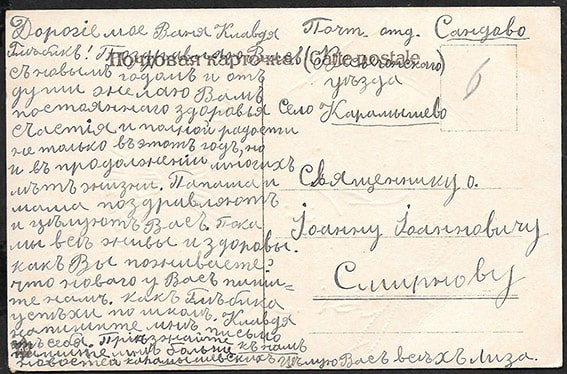 Дорогіе мое Ваня Клавдя
Глѣбікъ! Поздравляю Васъ
съ новымъ годомъ и отъ
души желаю Вамъ
постояннаго здоровья
счастія и полной радости
не только въ этотъ годъ, но
и въ продолженіи многихъ
лѣтъ жизни. Папаша и
мама поздравляютъ
и цѣлуютъ Васъ. Пока
мы всѣ живы и здоровы.
какъ Вы поживаете?
что новаго у Васъ пиши-
те намъ. какъ Глѣбика
успѣхи по школѣ. Клавдя
напишите мнѣ письмо
Пріѣзжайте къ намъ
пишите мнѣ больше
новостей карамышевскихъ Цѣлую Васъ всѣхъ Лиза.
Почтовая карточка. Carte postale
Почт. отд. Сандово
(Весьегонскаго
уѣзда
Село Карамышево
Священнику о.
Іоанну Іоанновичу
Смирнову